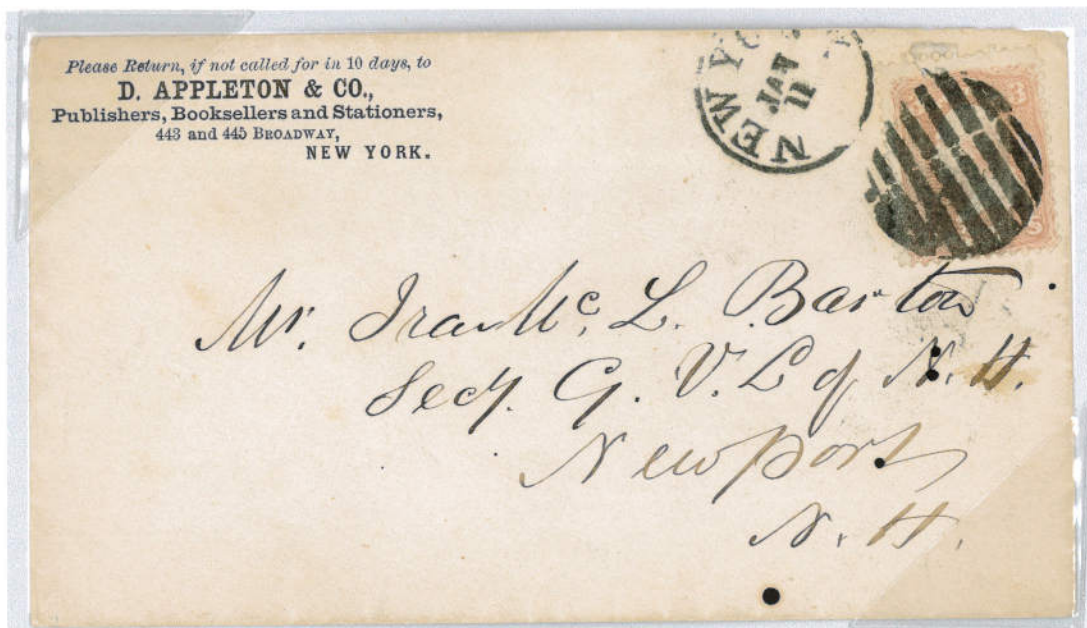 Please Return, if not called for in 10 days, to
D. APPLETON & CO.,
Publishers, Booksellers and Stationers,
443 and 445 BROADWAY,
NEW YORK.
NEW YO
JAN
11
3
Mr. Ira Mc. L. Barton
Secy. G. V. L of N. H.
Newport
N. H.